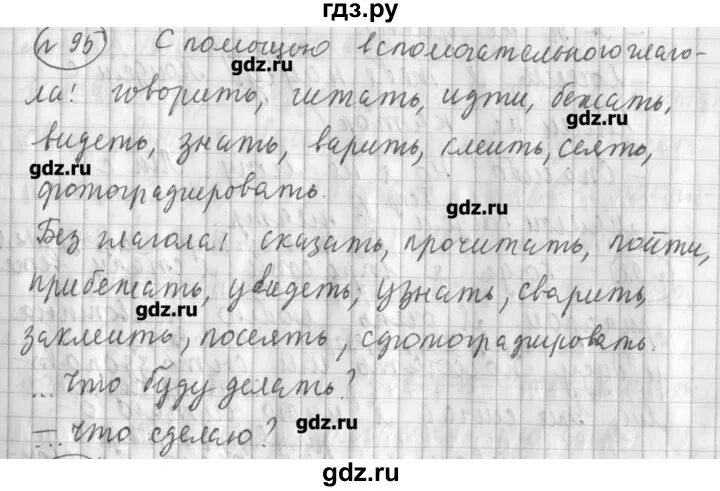 гдз.ру
N 95 С помощью вспомогательного глаго-
gdz.ru
ла: говорить, читать, идти, бежать,
gdz.ru
видеть, знать, варить, клеить, сеять,
gdz.ru
фотографировать.
gdz.ru
Без глагола: сказать, прочитать, пойти,
прибежать, увидеть, узнать, сварить,
gdz.ru
заклеить, посеять, сфотографировать.
... что буду делать?
— что сделаю?
gdz.ru
gdz.ru